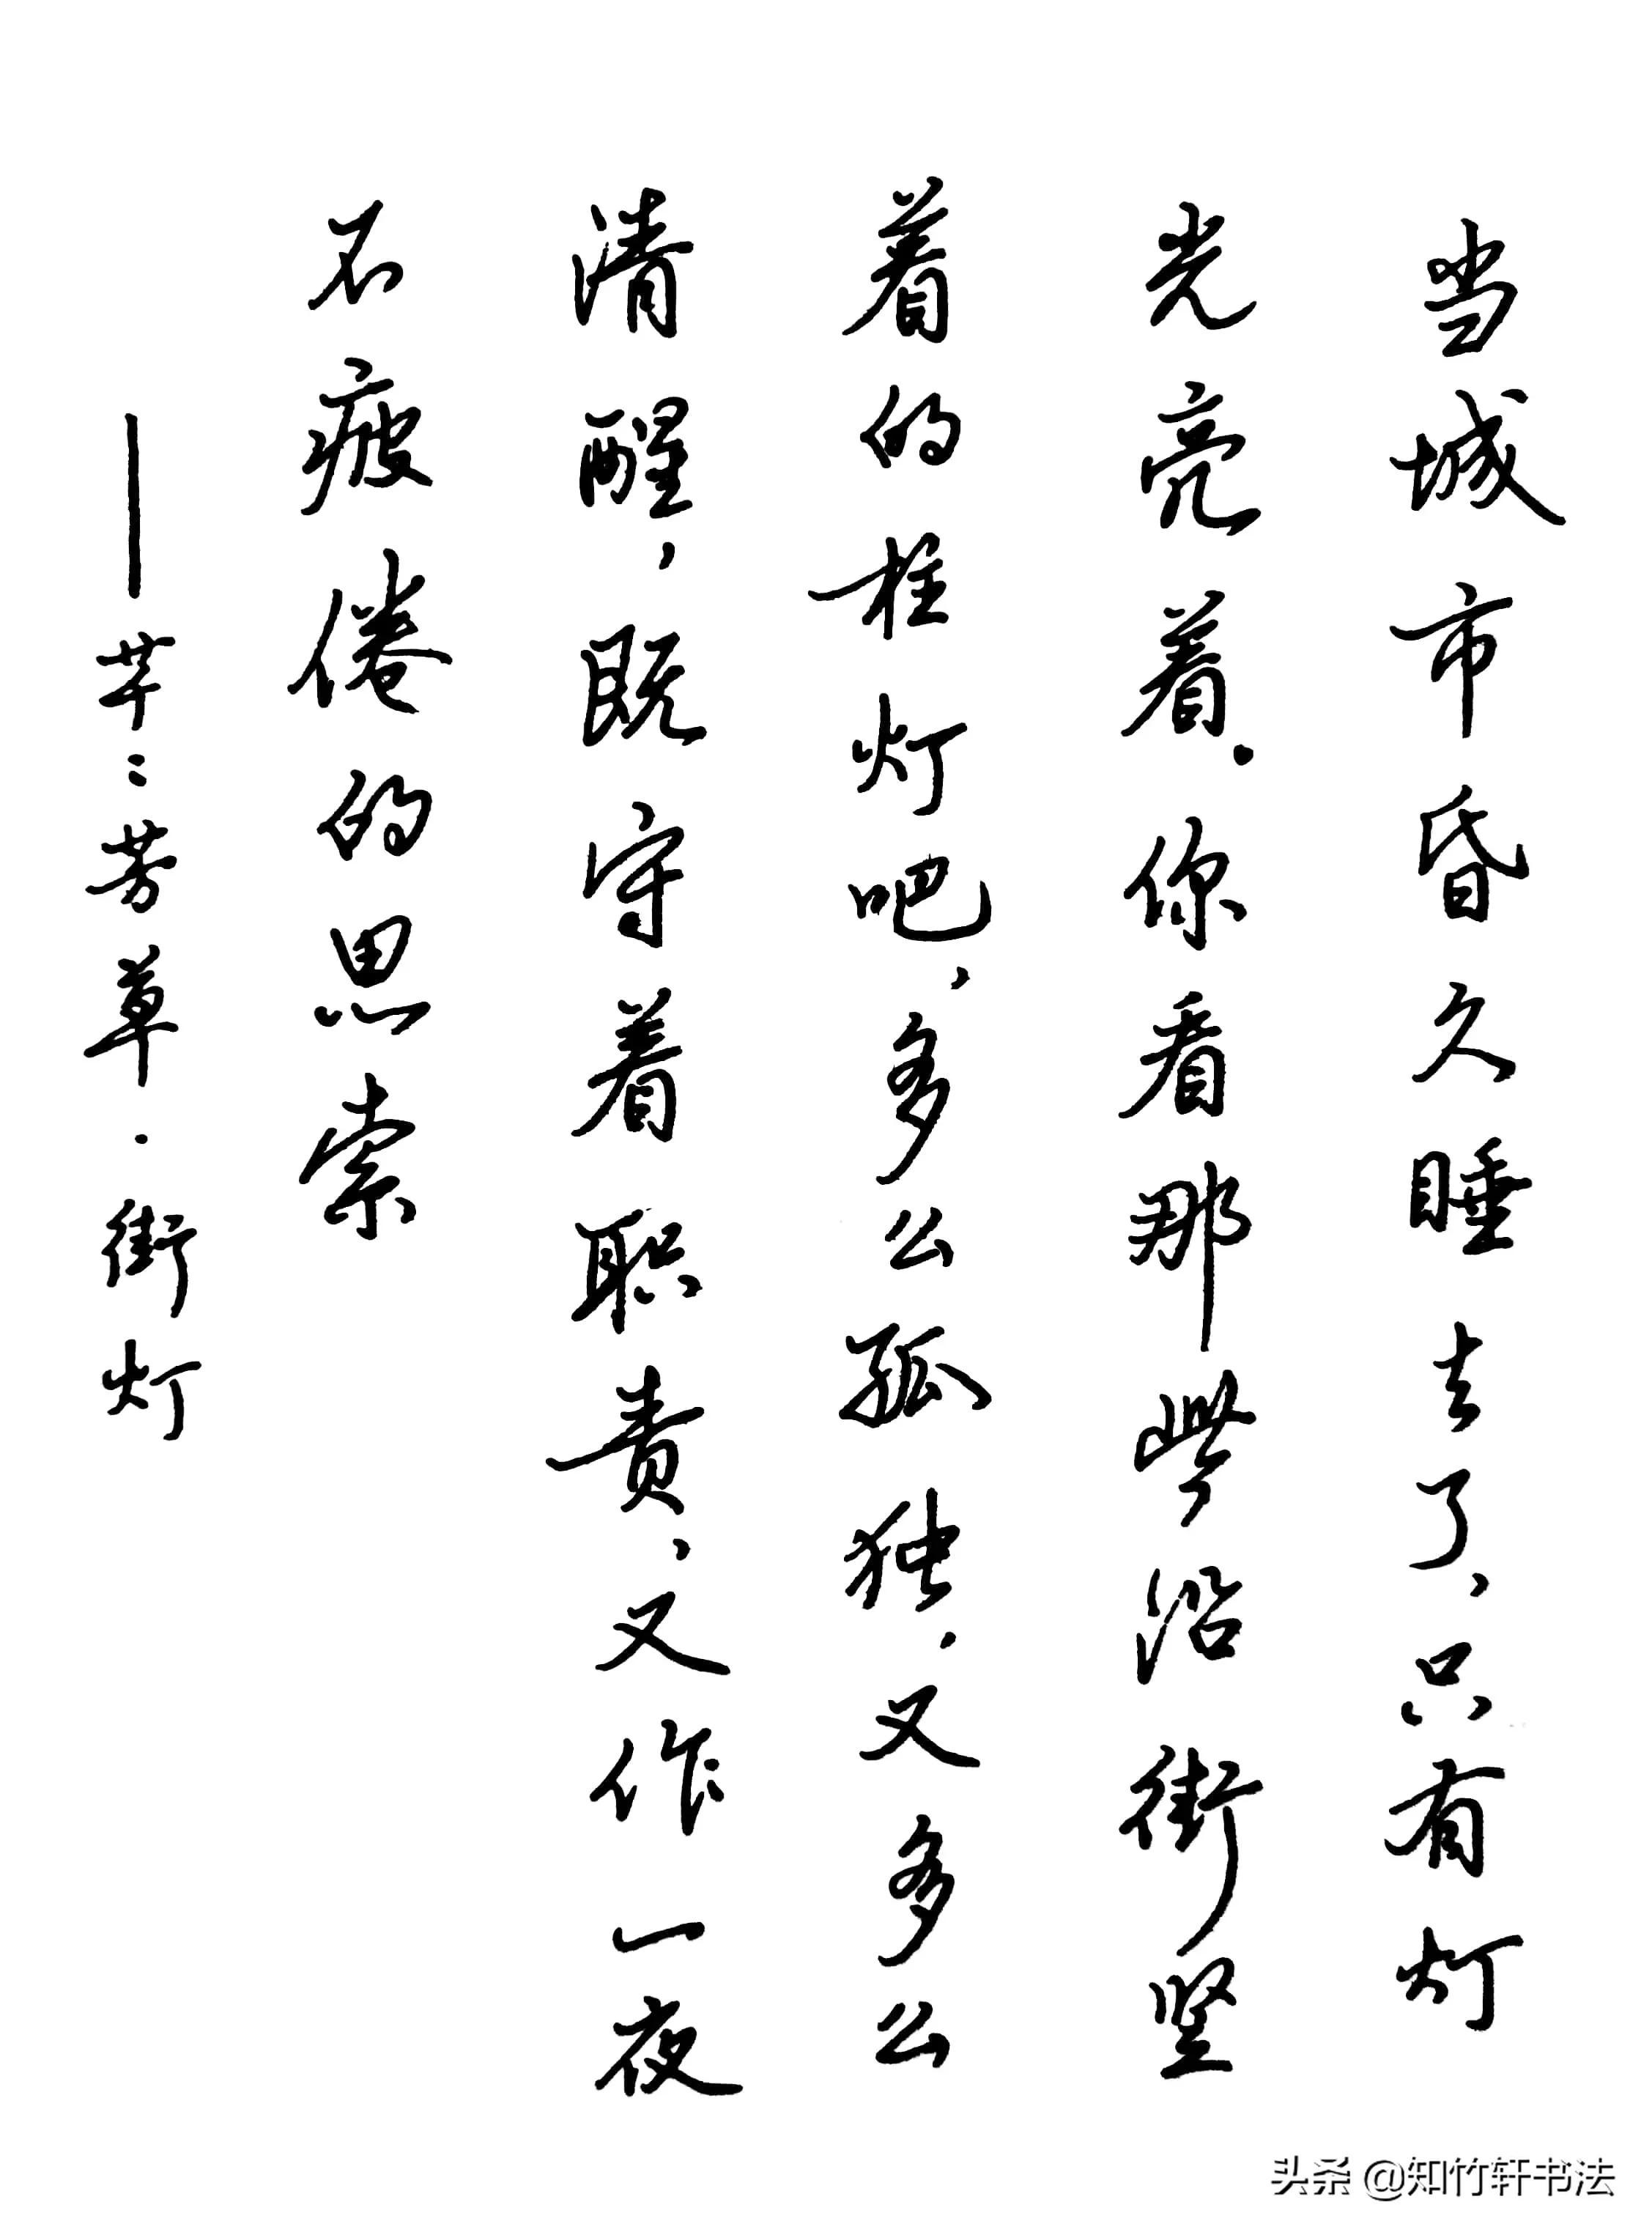 当城市昏久睡去了，只有灯
光亮着.你看那些沿街竖
着的柱灯吧，多么孤独.又多么
清醒，既守着职责，又作一夜
不疲倦的思索
——芊〻芳草·街灯
头条 @知竹轩书法